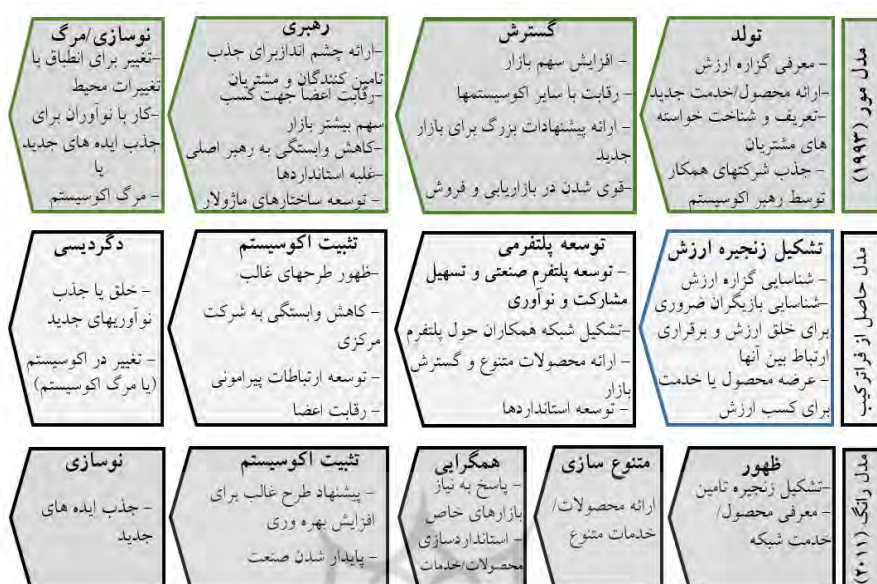 مدل مور (۱۹۹۳)
تولد
- معرفی گزاره ارزش
-ارائه محصول/خدمت جدید
-تعریف و شناخت خواسته
های مشتریان
- جذب شرکتهای همکار
توسط رهبر اکوسیستم
گسترش
- افزایش سهم بازار
- رقابت با سایر اکوسیستمها
- ارائه پیشنهادات بزرگ برای بازار
جدید
-قوی شدن در بازاریابی و فروش
رهبری
-ارائه چشم اندازبرای جذب
تامین کنندگان و مشتریان
-رقابت اعضا جهت کسب
سهم بیشتر بازار
-کاهش وابستگی به رهبر اصلی
-غلبه استانداردها
- توسعه ساختارهای ماژولار
نوسازی/مرگ
-تغییر برای انطباق با
تغییرات محیط
-کار با نوآوران برای
جذب ایده های جدید
یا
- مرگ اکوسیستم
مدل حاصل از فراترکیب
تشکیل زنجیره ارزش
- شناسایی گزاره ارزش
-شناسایی بازیگران ضروری
برای خلق ارزش و برقراری
ارتباط بین آنها
- عرضه محصول یا خدمت
برای کسب ارزش
توسعه پلتفرمی
- توسعه پلتفرم صنعتی و تسهیل
مشارکت و نوآوری
-تشکیل شبکه همکاران حول پلتفرم
- ارائه محصولات متنوع و گسترش
بازار
- توسعه استانداردها
تثبیت اکوسیستم
-ظهور طرحهای غالب
- کاهش وابستگی به شرکت
مرکزی
- توسعه ارتباطات پیرامونی
- رقابت اعضا
دگردیسی
- خلق یا جذب
نوآوریهای جدید
- تغییر در اکوسیستم
(یا مرگ اکوسیستم)
مدل رانگ (۲۰۱۱)
ظهور
-تشکیل زنجیره تامین
- معرفی محصول/
خدمت شبکه
متنوع سازی
ارائه محصولات/
خدمات متنوع
همگرایی
- پاسخ به نیاز
بازارهای خاص
- استانداردسازی
محصولات/خدمات
تثبیت اکوسیستم
- پیشنهاد طرح غالب برای
افزایش بهره وری
- پایدار شدن صنعت
نوسازی
- جذب ایده های
جدید